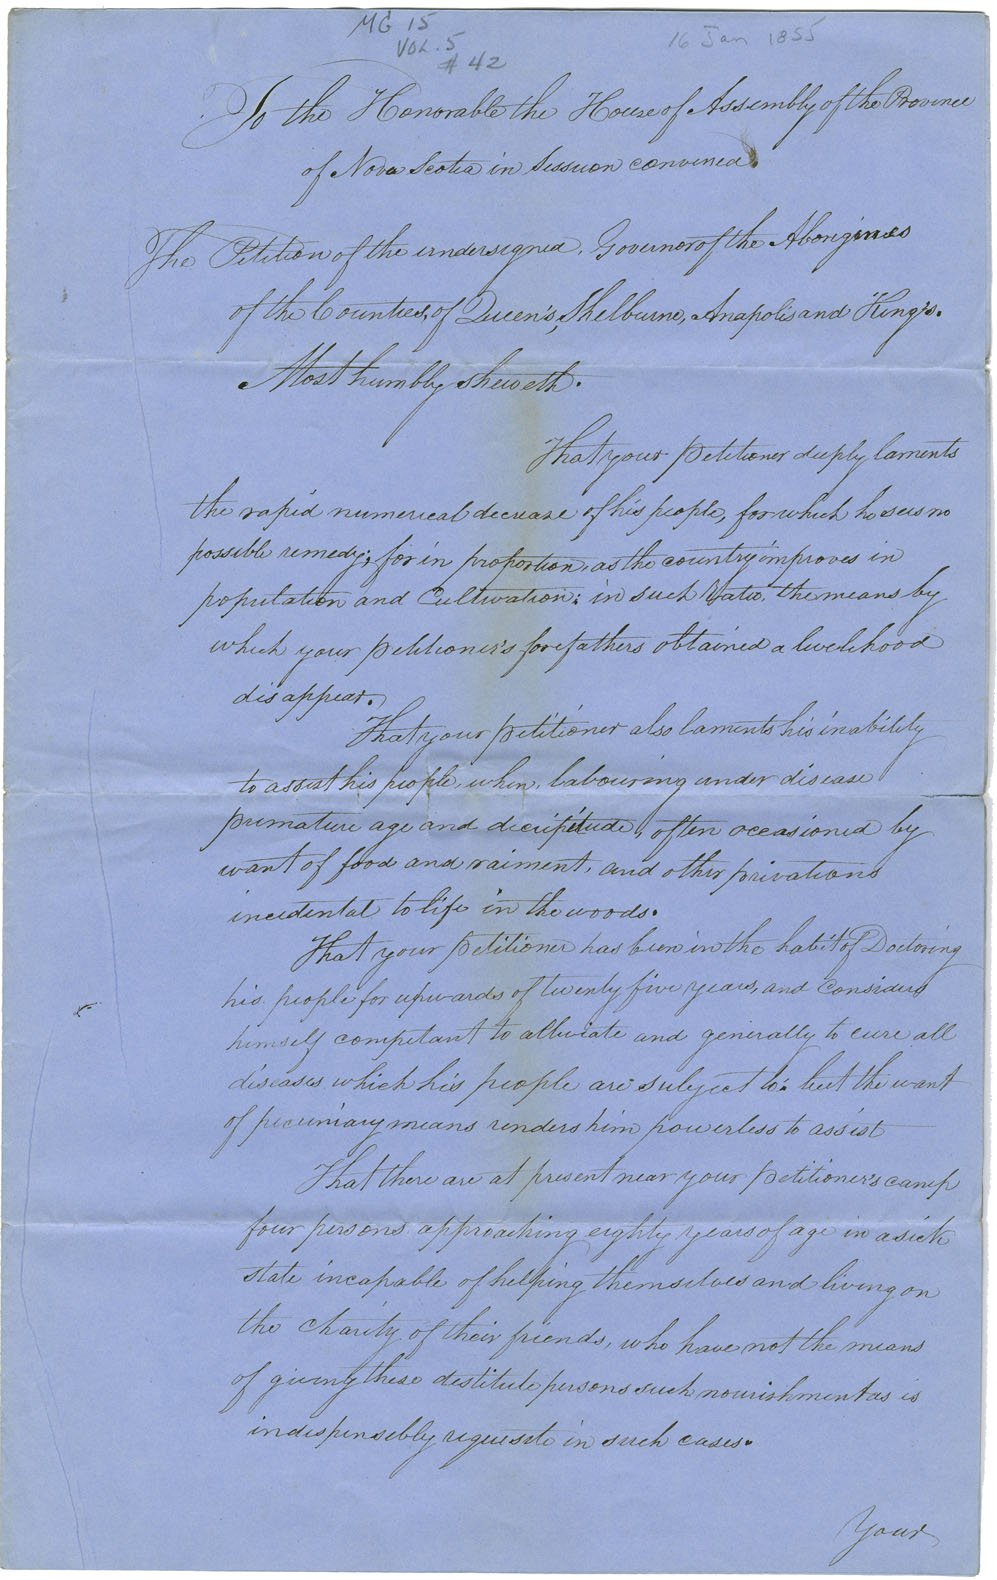 MG 15
VOL. 5
# 42
16 Jan 1855
To the Honorable the House of Assembly of the Province
of Nova Scotia in Session convened.
The Petition of the undersigned, Governor of the Aborigines
of the Counties, of Queen's, Shelburne, Anapolis and King's.
Most humbly sheweth.
That your petitioner deeply laments
the rapid numerical decrease of his people, for which he sees no
possible remedy; for in proportion, as the country improves in
population and Cultivation: in such Ratio, the means by
which your petitioner's forefathers obtained a livelihood
disappear.
That your petitioner also laments his inability
to assist his people, when, labouring under disease
premature age and decripitude, often occasioned by
want of food and raiment, and other privations
incidental to life in the woods.
That your petitioner has been in the habit of Doctoring
his people for upwards of twenty five years, and considers
himself competant to alleviate and generally to cure all
diseases which his people are subject to: but the want
of pecuniary means renders him powerless to assist
That there are at present near your petitioner's camp
four persons approaching eighty years of age in a sick
state incapable of helping themselves and living on
the charity of their friends, who have not the means
of giving these destitute persons such nourishment as is
indispensibly requisite in such cases.
Your